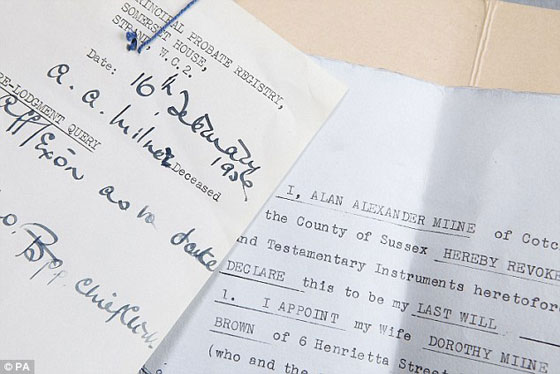 PRINCIPAL PROBATE REGISTRY,
SOMERSET HOUSE,
STRAND, W.C.2.
Date: 16th February
1956
a. a. Milne Deceased
E-LODGMENT QUERY
aff/Exôr as to date
I, ALAN ALEXANDER MILNE of Cotc
the County of Sussex HEREBY REVOKE
and Testamentary Instruments heretofor
DECLARE this to be my LAST WILL
1. I APPOINT my Wife DOROTHY MILNE
BROWN of 6 Henrietta Street
(who and the
© PA